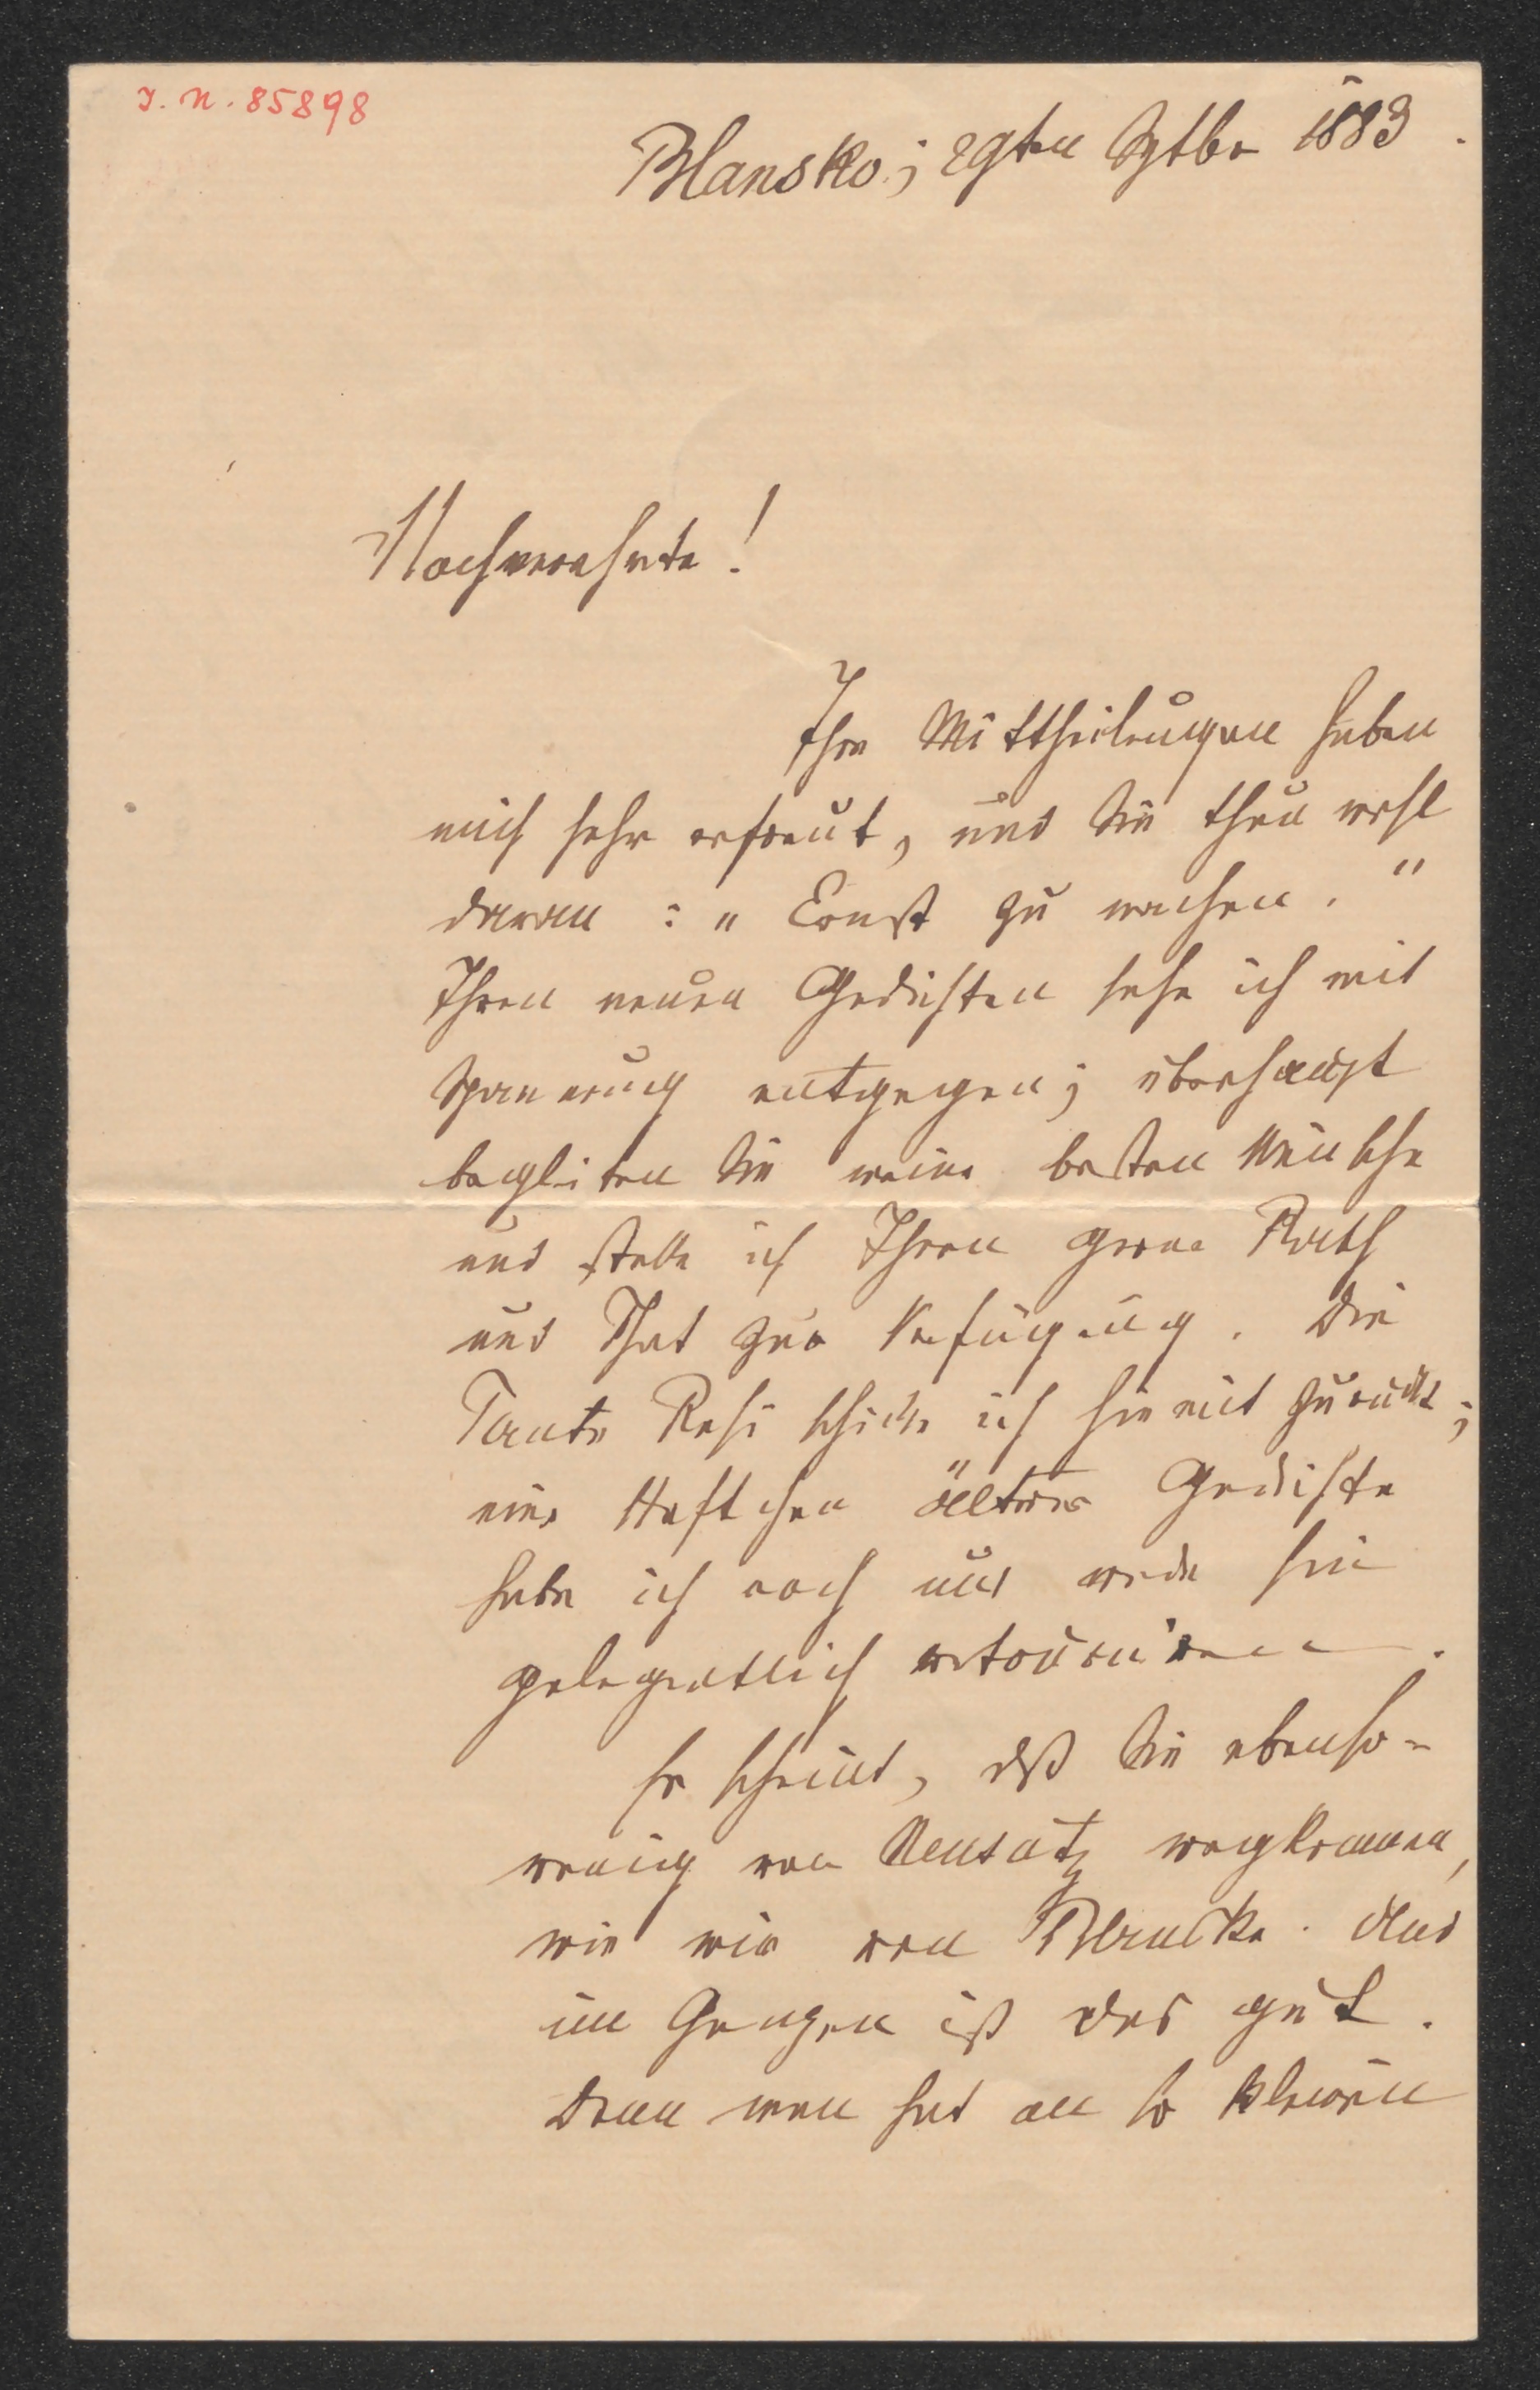 I. N. 85898
Blansko; 29ten Sptbr 1883.
Hochverehrte!
Ihre Mittheilungen haben
mich sehr erfreut, und Sie thun wohl
daran: „Ernst zu machen."
Ihren neuen Gedichten sehe ich mit
Spannung entgegen; überhaupt
begleiten Sie meine besten Wünsche
und stelle ich Ihnen gerne Rath
und That zur Verfügung. Die
Tante Resi schicke ich hiemit zurück;
ein Heftchen älterer Gedichte
habe ich noch und werde sie
gelegentlich retourniren.
Es scheint, daß Sie ebenso-
wenig von Neusatz wegkommen,
wie wir von Blansko. Und
im Ganzen ist das gut.
Denn man hat an so kleinen